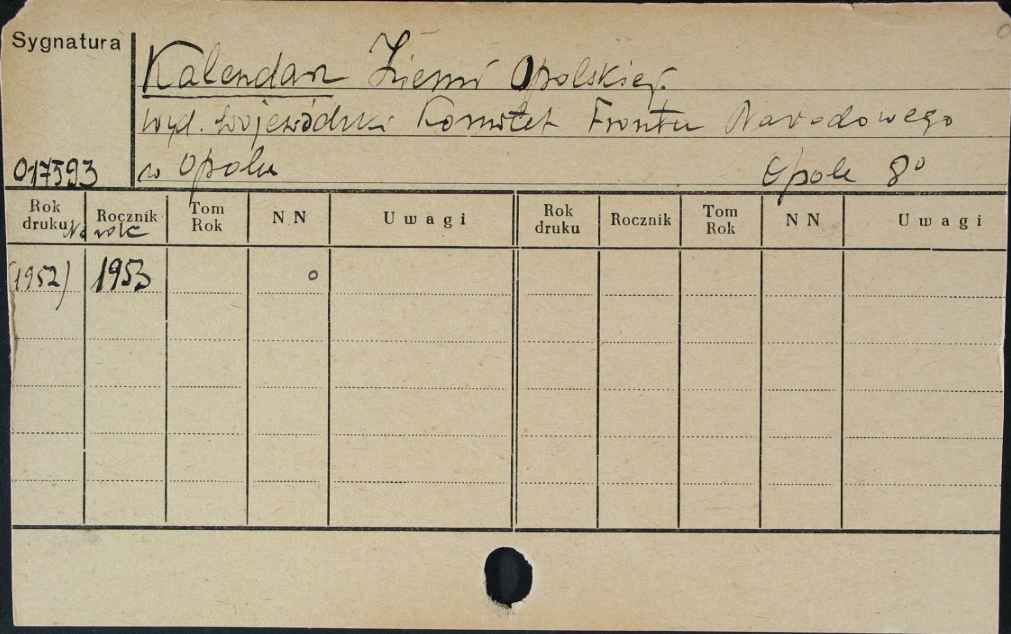 Sygnatura
Kalendarz Ziemi Opolskiej.
wyd. Wojewódzki Komitet Frontu Narodowego
017593 w Opolu Opole 8°
Rok druku Rocznik Tom Rok N N Uwagi Rok druku Rocznik Tom Rok N N Uwagi
Na rok
(1952) 1953